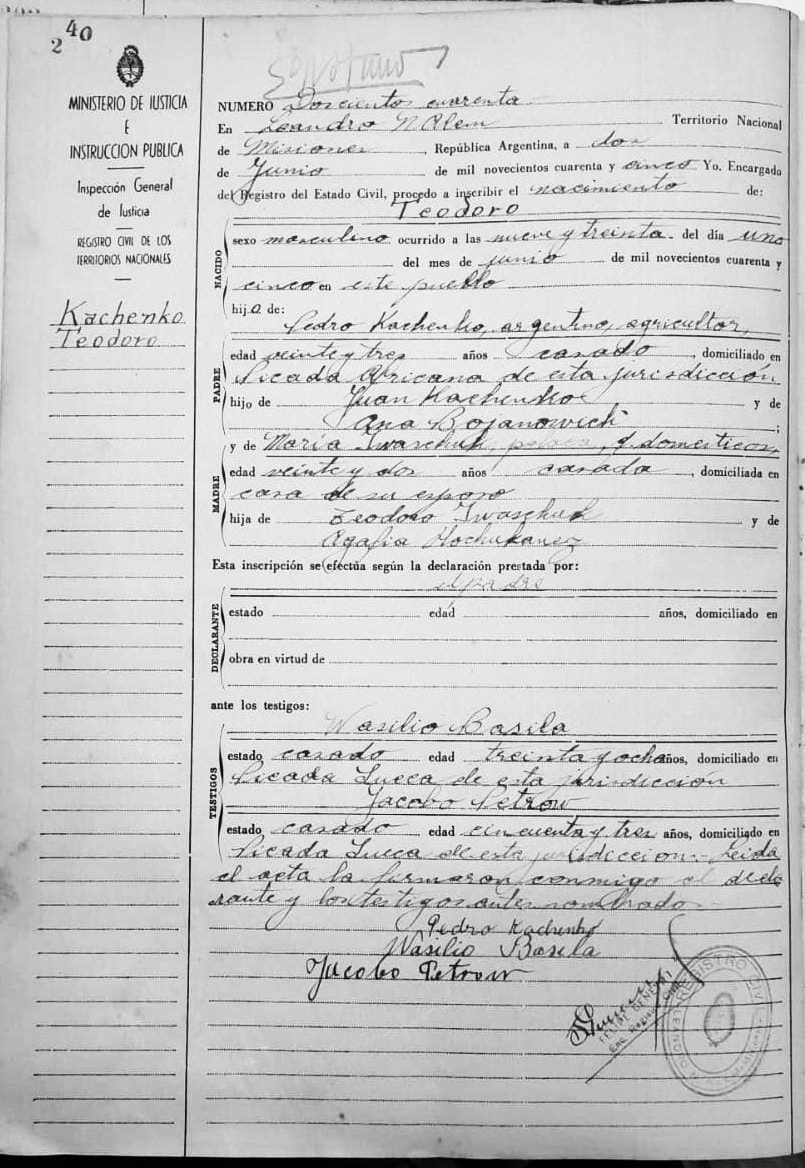 240
MINISTERIO DE JUSTICIA
E
INSTRUCCION PUBLICA
Inspección General
de Justicia
REGISTRO CIVIL DE LOS
TERRITORIOS NACIONALES
Kachenko
Teodoro
NUMERO Doscientos cuarenta
En Leandro N Alem Territorio Nacional
de Misiones, República Argentina, a dos
de Junio de mil novecientos cuarenta y cinco Yo, Encargado
del Registro del Estado Civil, procedo a inscribir el nacimiento de:
Teodoro
NACIDO
sexo masculino ocurrido a las nueve y treinta del día uno
del mes de junio de mil novecientos cuarenta y
cinco en este pueblo
hijo de:
Pedro Kachenko, argentino, agricultor,
PADRE
edad veinte y tres años casado, domiciliado en
Picada Africana de esta jurisdicción
hijo de Juan Kachenko y de
Ana Bojanowich;
y de María Iwaschuk, polaca, q. domesticos,
MADRE
edad veinte y dos años casada, domiciliada en
casa de su esposo
hija de Teodoro Iwaschuk y de
Agafia
Esta inscripción se efectúa según la declaración prestada por:
el padre
DECLARANTE
estado edad años, domiciliado en
obra en virtud de
ante los testigos:
Wasilio Basila
TESTIGOS
estado casado edad treinta y ocho años, domiciliado en
Picada Lucca de esta jurisdicción
Jacobo Petrow
estado casado edad cincuenta y tres años, domiciliado en
Picada Lucca de esta jurisdiccion.- Leida
el acta la firmaron conmigo el decla
rante y los testigos antes nombrado
Pedro Kachenko
Wasilio Basila
Jacobo Petrow
REGISTRO CIVIL